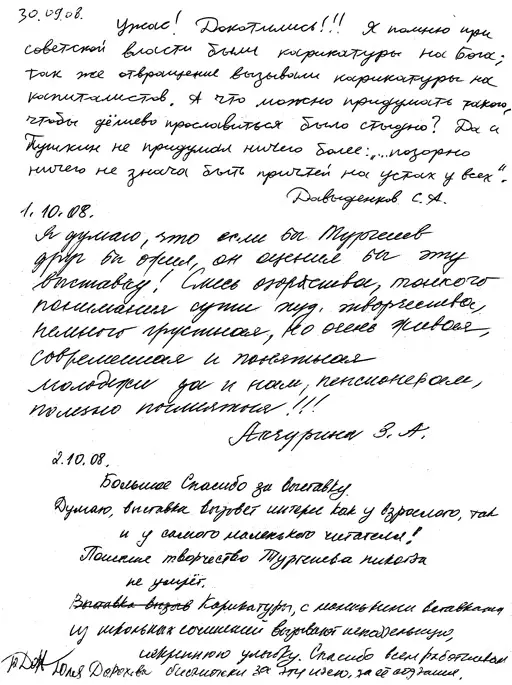 30.09.08.
Ужас! Докотились!!! Я помню при
советской власти были карикатуры на Бога;
так же отвращение вызывали карикатуры на
капиталистов. А что можно придумать такого,
чтобы дёшево прославиться было стыдно? Да и
Пушкин не придумал ничего более: „...позорно
ничего не знача быть притчей на устах у всех“.
Давыденков С.А.
1.10.08.
Я думаю, что если бы Тургенев
друг бы ожил, он оценил бы эту
выставку! Смесь озорства, тонкого
понимания сути худ. творчества,
немного грустная, но очень живая,
современная и понятная
молодёжи да и нам, пенсионерам,
полезно посмеяться!!!
Анчурина З.А.
2.10.08.
Большое Спасибо за выставку.
Думаю, выставка вызовет интерес как у взрослого, так
и у самого маленького читателя!
творчество Тургенева никогда
не умрёт.
Выставка вызыв Карикатуры, с маленькими вставками
из школьных сочинений вызывают неподдельную,
искреннюю улыбку. Спасибо всем работникам
Юля Дорохова библиотеки за эту идею, за её создание.